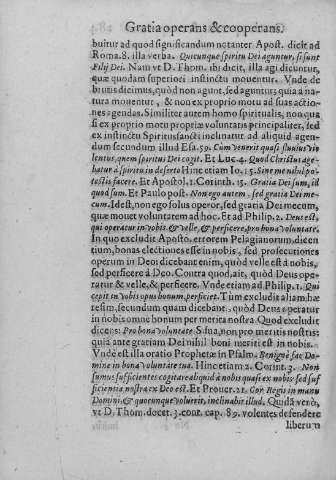 Gratia operans & cooperans.
buitur ad quod significandum notanter Apost. dicit ad
Roma. 8. illa verba. Quicunque spiritu Dei aguntur, ij sunt
Filij Dei. Nam vt D. Thom. ibi dicit, illa agi dicuntur,
quæ quodam superiori instinctu mouentur. Vnde de
brutis dicimus, quòd non agunt, sed aguntur; quia à na
tura mouentur, & non ex proprio motu ad suas actio-
nes agendas. Similiter autem homo spiritualis, non qua
si ex proprio motu propriæ voluntatis principaliter, sed
ex instinctu Spiritus sancti inclinatur ad aliquid agen-
dum secundum illud Esa. 59. Cùm venerit quasi fluuius vio
lentus, quem spiritus Dei cogit. Et Luc. 4. Quod Christus age-
batur à spiritu in deserto Hinc etiam Io. 15. Sine me nihil po-
testis facere. Et Apostol. 1. Corinth. 15. Gratia Dei sum, id
quod sum. Et Paulo post. Non ego autem, sed gratia Dei me-
cum. Idest, non ego solus operor, sed gratia Dei mecum,
quæ mouet voluntatem ad hoc. Et ad Philip. 2. Deus est,
qui operatur in vobis & velle, & perficere, pro bona voluntate.
In quo excludit Aposto. errorem Pelagianorum, dicen
tium, bonas electiones esse in nobis, sed prosecutiones
operum in Deo: dicebant enim, quòd velle est à nobis,
sed perficere à Deo. Contra quod, ait, quòd Deus ope-
ratur & velle, & perficere. Vnde etiam ad Philip. 1. Qui
cepit in vobis opus bonum, perficiet. Tum excludit aliam hæ
resim, secundum quam dicebant. quòd Deus operatur
in nobis omne bonum per merita nostra. Quod excludit
dicens: Pro bona voluntate. Sua, non pro meritis nostris:
quia ante gratiam Dei nihil boni meriti est in nobis.
Vnde est illa oratio Prophetæ in Psalm. Benignè fac Do-
mine in bona voluntate tua. Hinc etiam 2. Corint. 3. Non
sumus sufficientes cogitare aliquid à nobis quasi ex nobis, sed suf
ficientia nostra ex Deo est. Et Prouer. 21. Cor Regis in manu
Domini, & quocunque voluerit, inclinabit illud. Quidã verò,
vt D. Thom. docet. 3. cont. cap. 89. volentes defendere
liberum